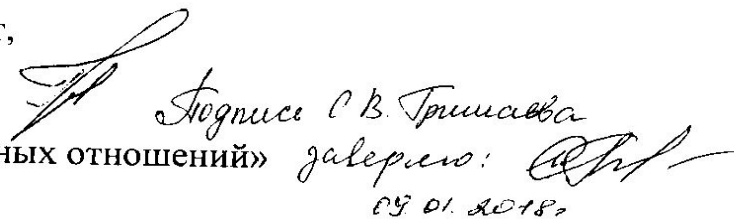 т,
Подпись С В. Гришаева
ных отношений» заверяю:
09 01. 2018г